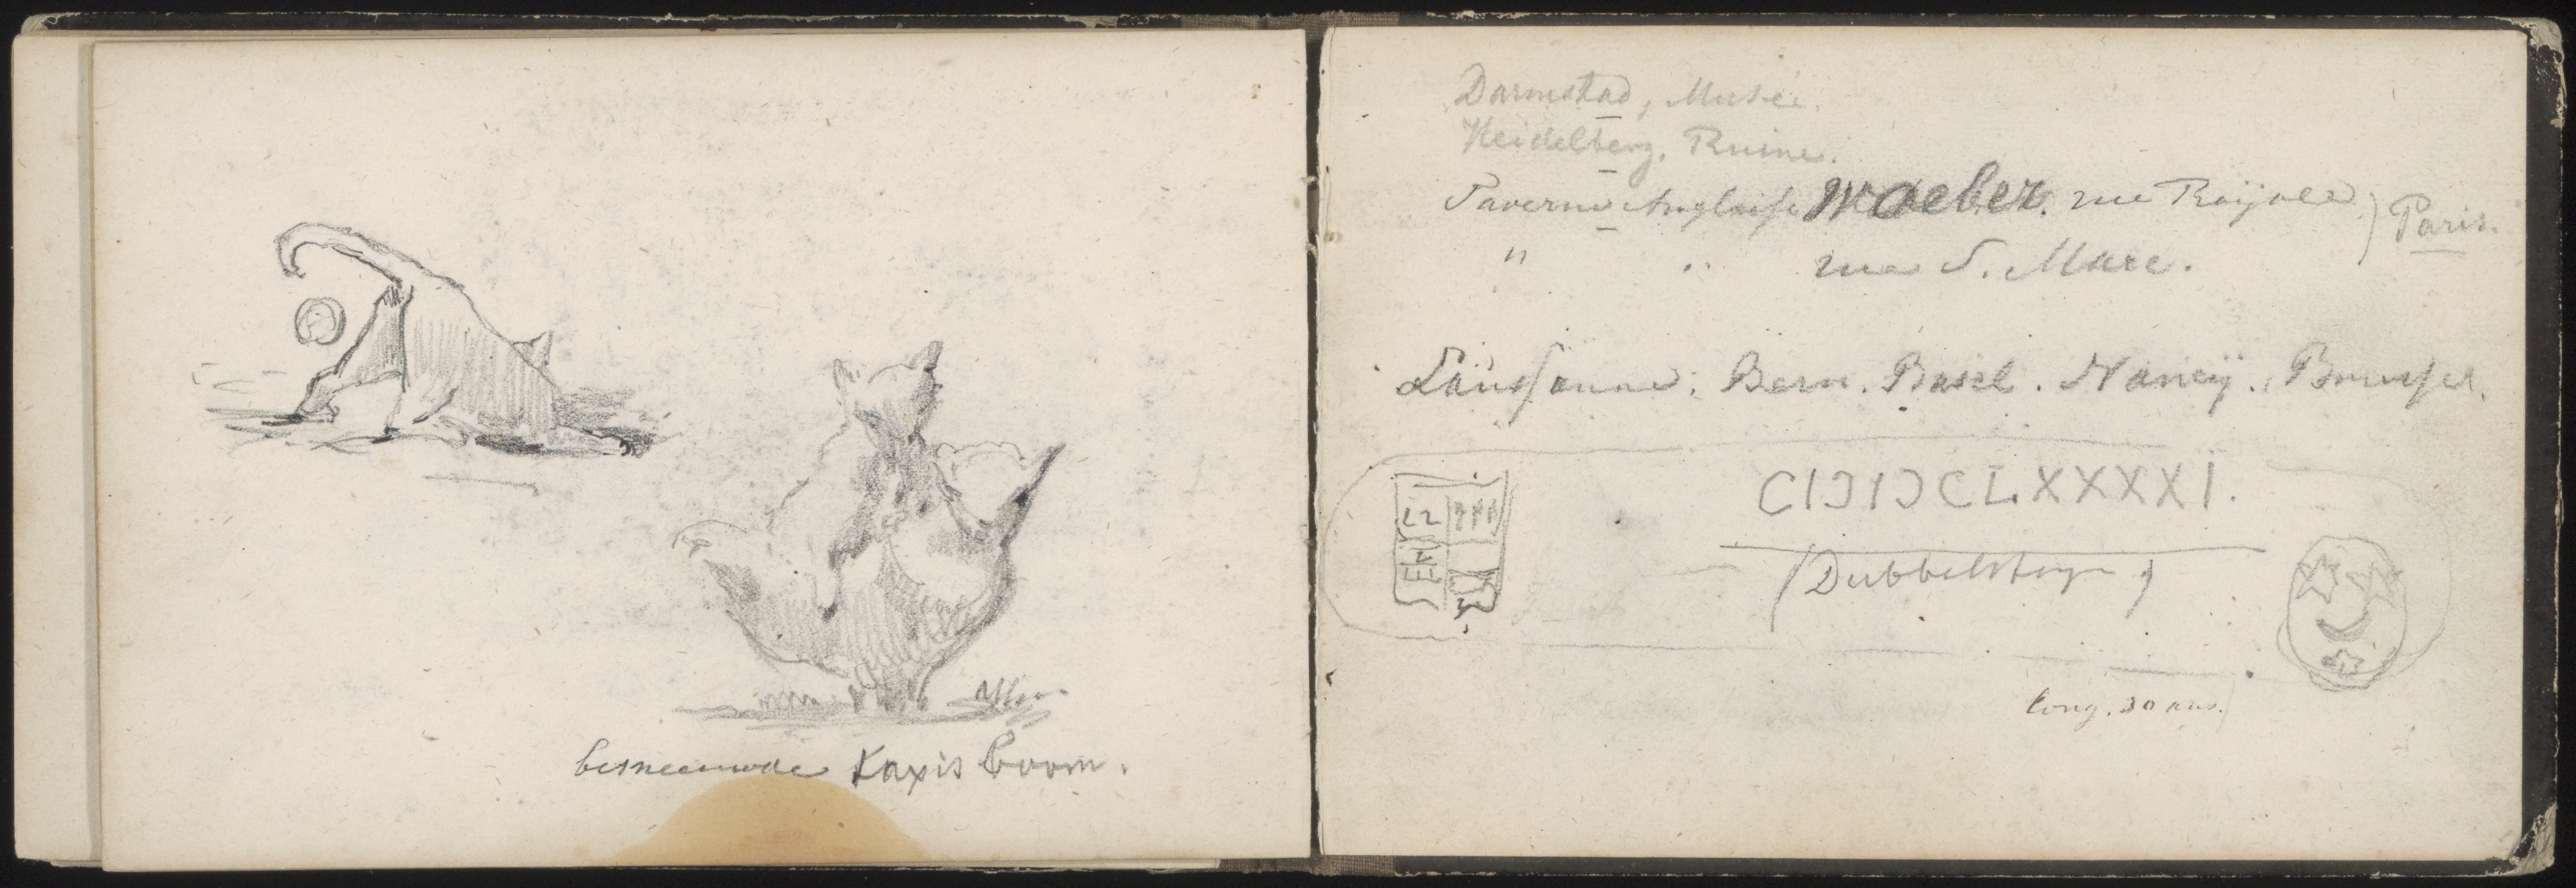 besneeuwde Taxis boom.
Darmstad, Musée.
Heidelberg, Ruine.
Taverne Anglaise Waeber. rue Roijale) Paris.
" " rue S. Marc.
Laussanne; Bern. Basel. Nancÿ. Brussel.
CIƆIƆCLXXXXI.
(Dubbelsteyn)